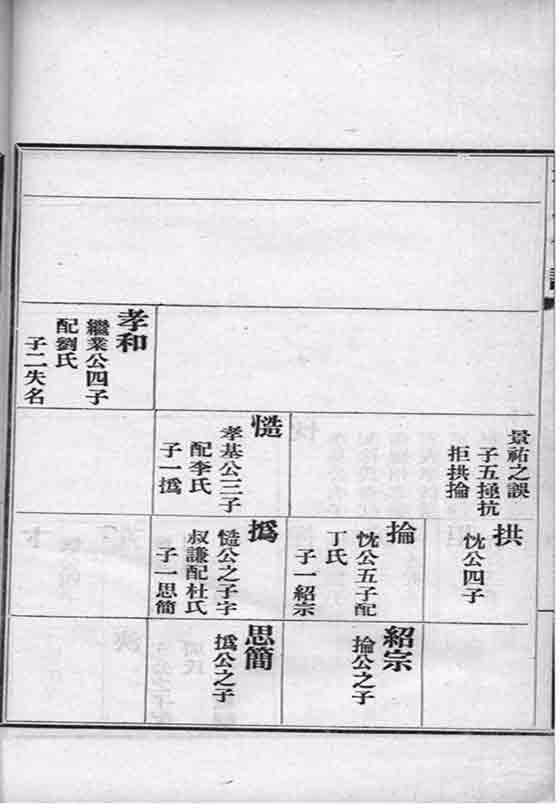 景祐之誤
子五抗
拒拱掄
慥
孝基公三子
配李氏
子一撝
孝和
繼業公四子
配劉氏
子二失名
拱
忱公四子
掄
忱公五子配
丁氏
子一紹宗
撝
慥公之子字
叔謙配杜氏
子一思簡
紹宗
掄公之子
思簡
撝公之子